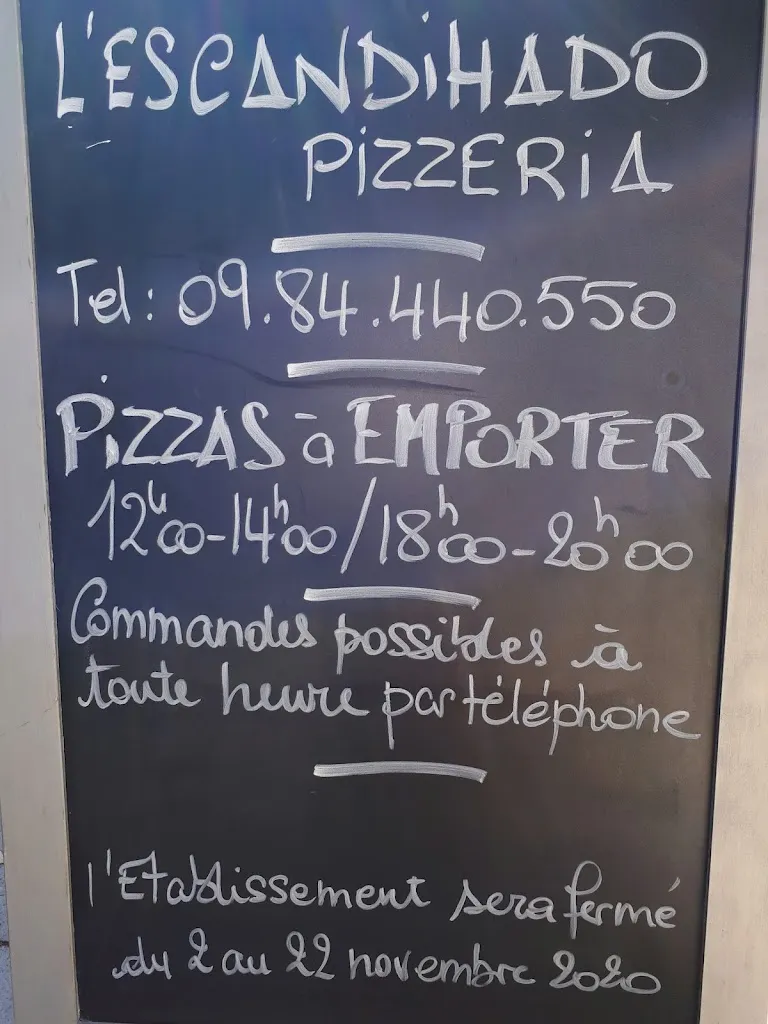 L'ESCANDIHADO
PIZZERIA
Tel: 09.84.440.550
PIZZAS à EMPORTER
12h00-14h00/18h00-20h00
Commandes possibles à
toute heure par téléphone
l'Etablissement sera fermé
du 2 au 22 novembre 2020